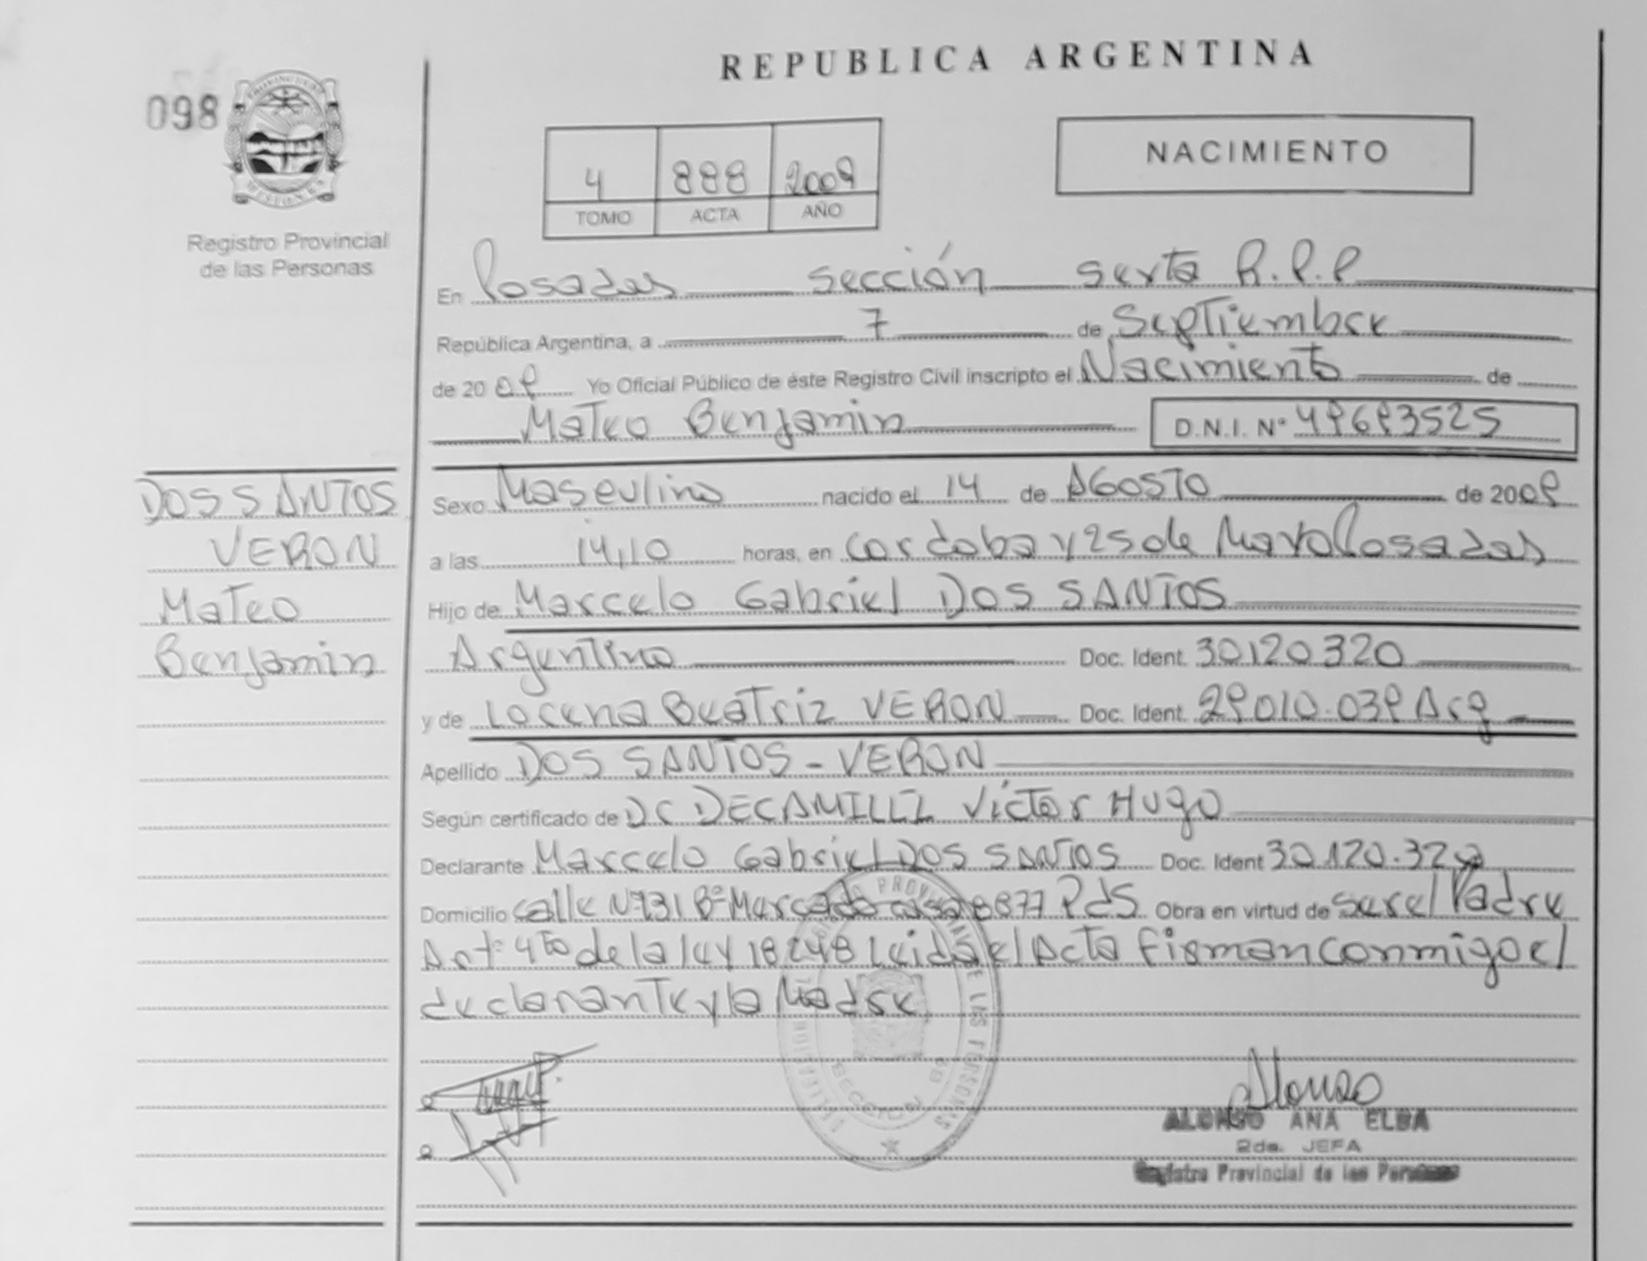 REPUBLICA ARGENTINA
098
NACIMIENTO
4 888 2009
TOMO ACTA AÑO
Registro Provincial
de las Personas
En Posadas sección sexta R.P.P
República Argentina, a 7 de Septiembre
de 20 09 Yo Oficial Público de éste Registro Civil inscripto el Nacimiento de
Mateo Benjamin D.N.I. Nº 49693525
DOS SANTOS
VERON
Mateo
Benjamin
Sexo Masculino nacido el 14 de AGOSTO de 2009
a las 14,10 horas, en Cordoba y 25 de Mayo Posadas
Hijo de Marcelo Gabriel DOS SANTOS
Argentino Doc. Ident. 30120320
y de Lorena Beatriz VERON Doc. Ident. 29010.039 Arg
Apellido DOS SANTOS - VERON
Según certificado de Dr DECAMILLI Victor Hugo
Declarante Marcelo Gabriel DOS SANTOS Doc. Ident 30.120.320
Domicilio calle Nº 31 Bº Mercado casa 8877 Pds Obra en virtud de ser el Padre
Art. 4to de la ley 18248 Leida el Acta firman conmigo el
declarante y la Madre
PROVINCIAL DE LAS PERSONAS
Alonso
ALONSO ANA ELBA
2da. JEFA
Registro Provincial de las Personas